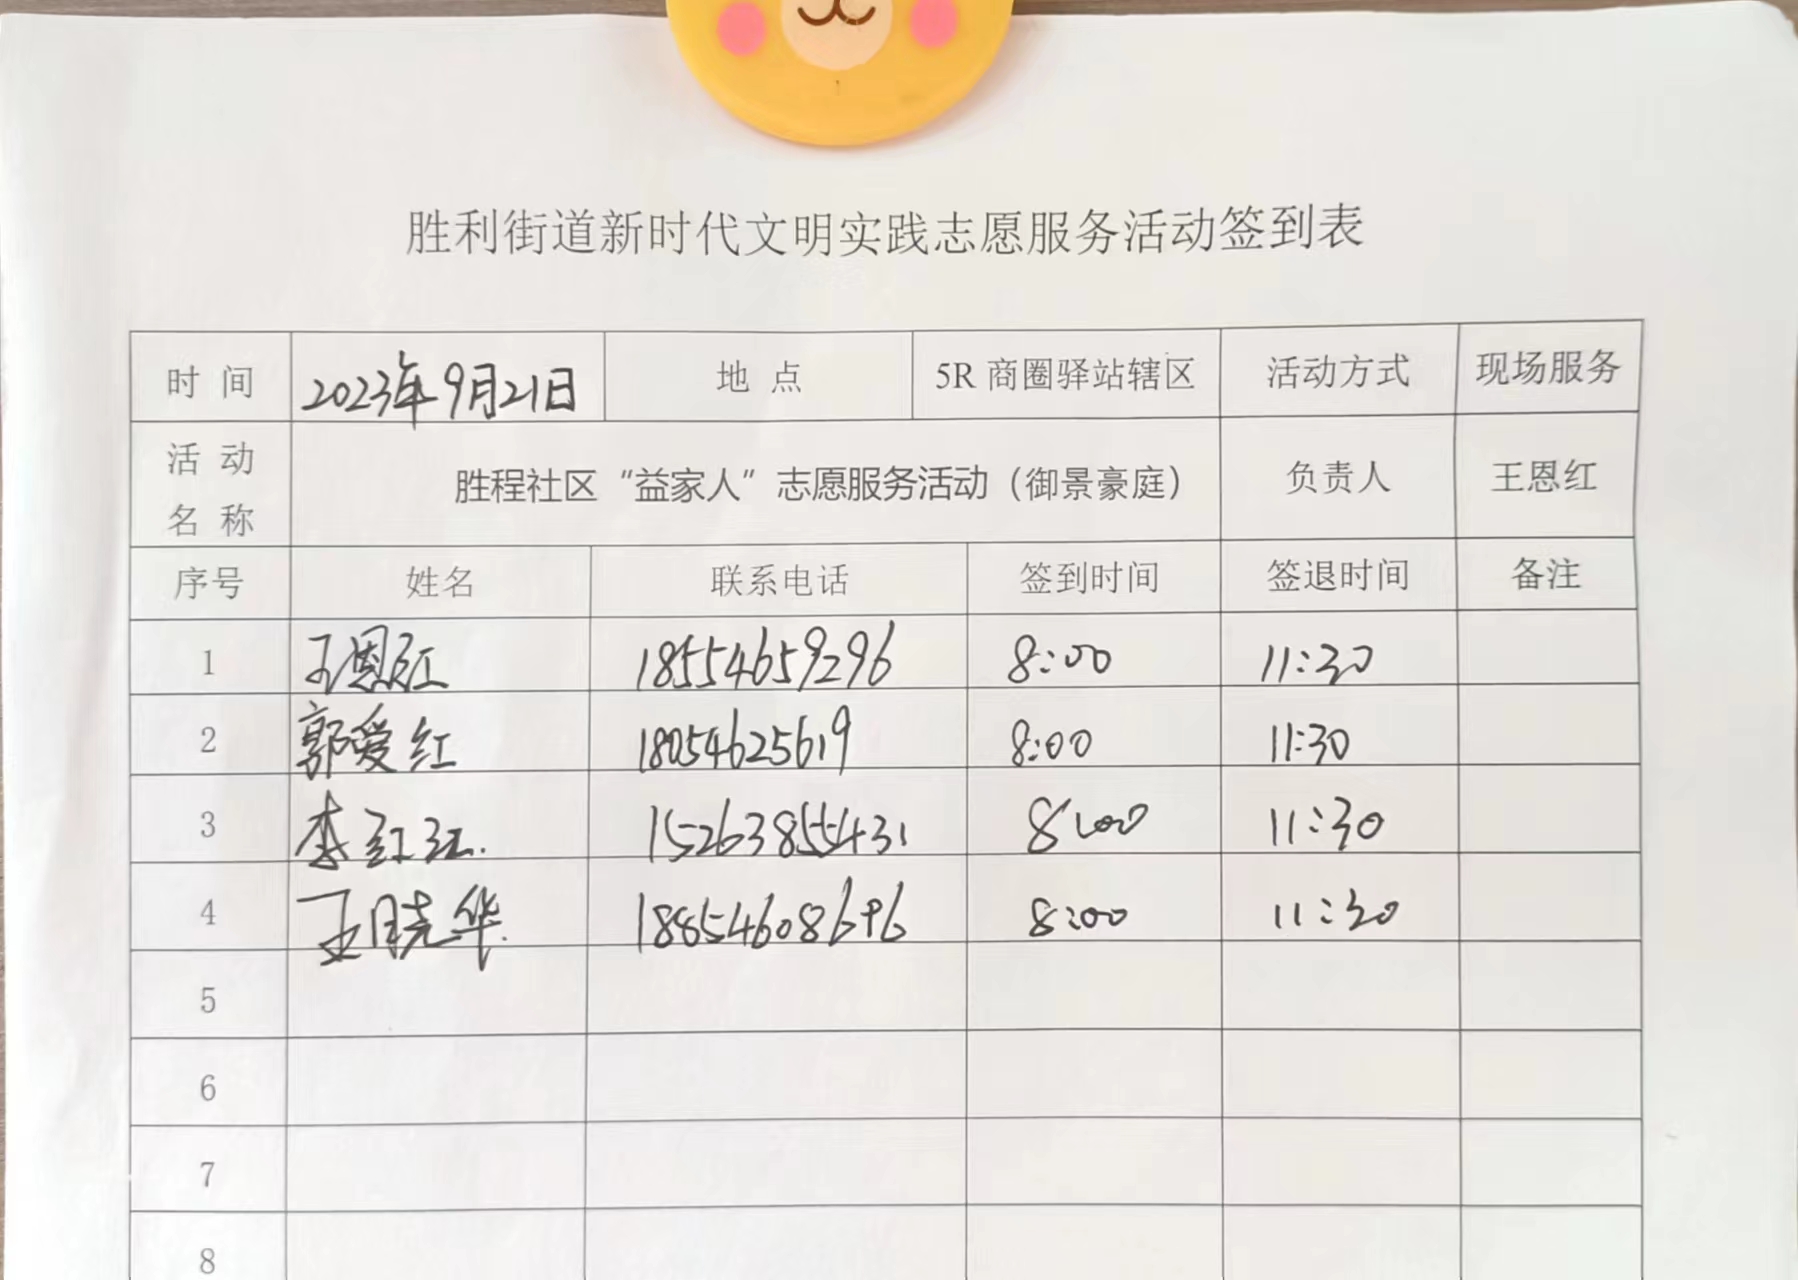 胜利街道新时代文明实践志愿服务活动签到表
时 间 2023年9月21日 地 点 5R 商圈驿站辖区 活动方式 现场服务
活 动
名 称 胜程社区“益家人”志愿服务活动（御景豪庭） 负责人 王恩红
序号 姓名 联系电话 签到时间 签退时间 备注
1 王恩红 18554659296 8:00 11:30
2 郭爱红 18054625619 8:00 11:30
3 李红江 15263855431 8:00 11:30
4 王晓华 18854608696 8:00 11:30
5
6
7
8